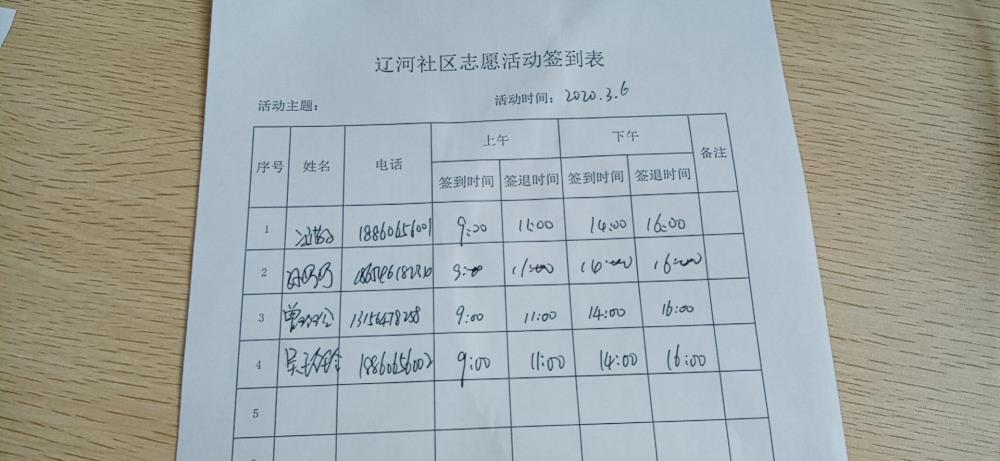 辽河社区志愿活动签到表
活动主题： 活动时间：2020.3.6
序号 姓名 电话 上午 下午 备注
签到时间 签退时间 签到时间 签退时间
1 18860656001 9:00 11:00 14:00 16:00
2 9:00 11:00 14:00 16:00
3 13156478258 9:00 11:00 14:00 16:00
4 18860656002 9:00 11:00 14:00 16:00
5